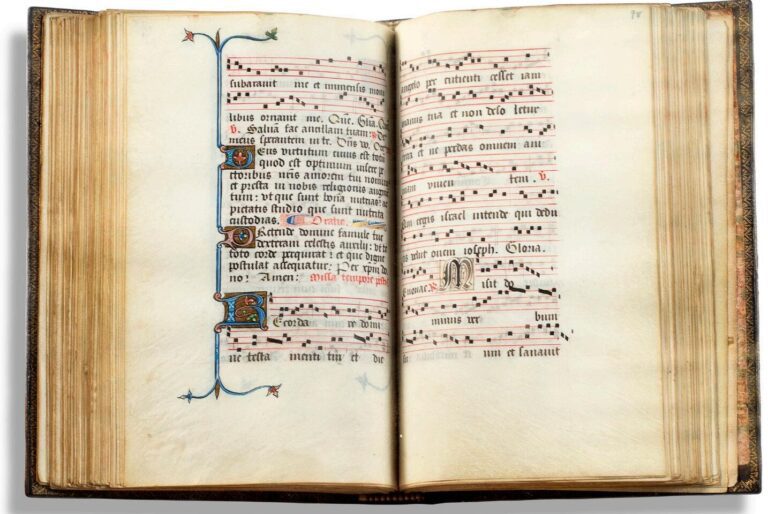 subarauit me et inmensis moni
libus ornauit me. Que. Glia. Que
v. Saluā fac ancillam tuam: De
meus sperantem in te. Dn̄s v. Or
Deus virtutum cuius est totū
quod est optimum insere pe
ctoribus nr̄is amorem tui nominis
et presta in nobis religionis augmē
tum: vt que sunt bona nutrias: ac
pietatis studio que sunt nutrita
custodias. Oratio.
PRetende domine famule tue
dexteram celestis auxilij: vt te
toto corde perquirat: et que digne
postulat assequatur: Per xp̄m do
no: Amen: Missa tempore pesti
REcorda re domi
ne testa menti tui et dic
98
angelo per cutienti cesset iam
manus tua et non deso letur
terra et ne perdas omnem ani
mam viuen tem. v.
Qui regis israel intende qui dedu
cis velut ouem ioseph. Gloria.
Euouae. MIsit do
minus ver bum
um et sanauit